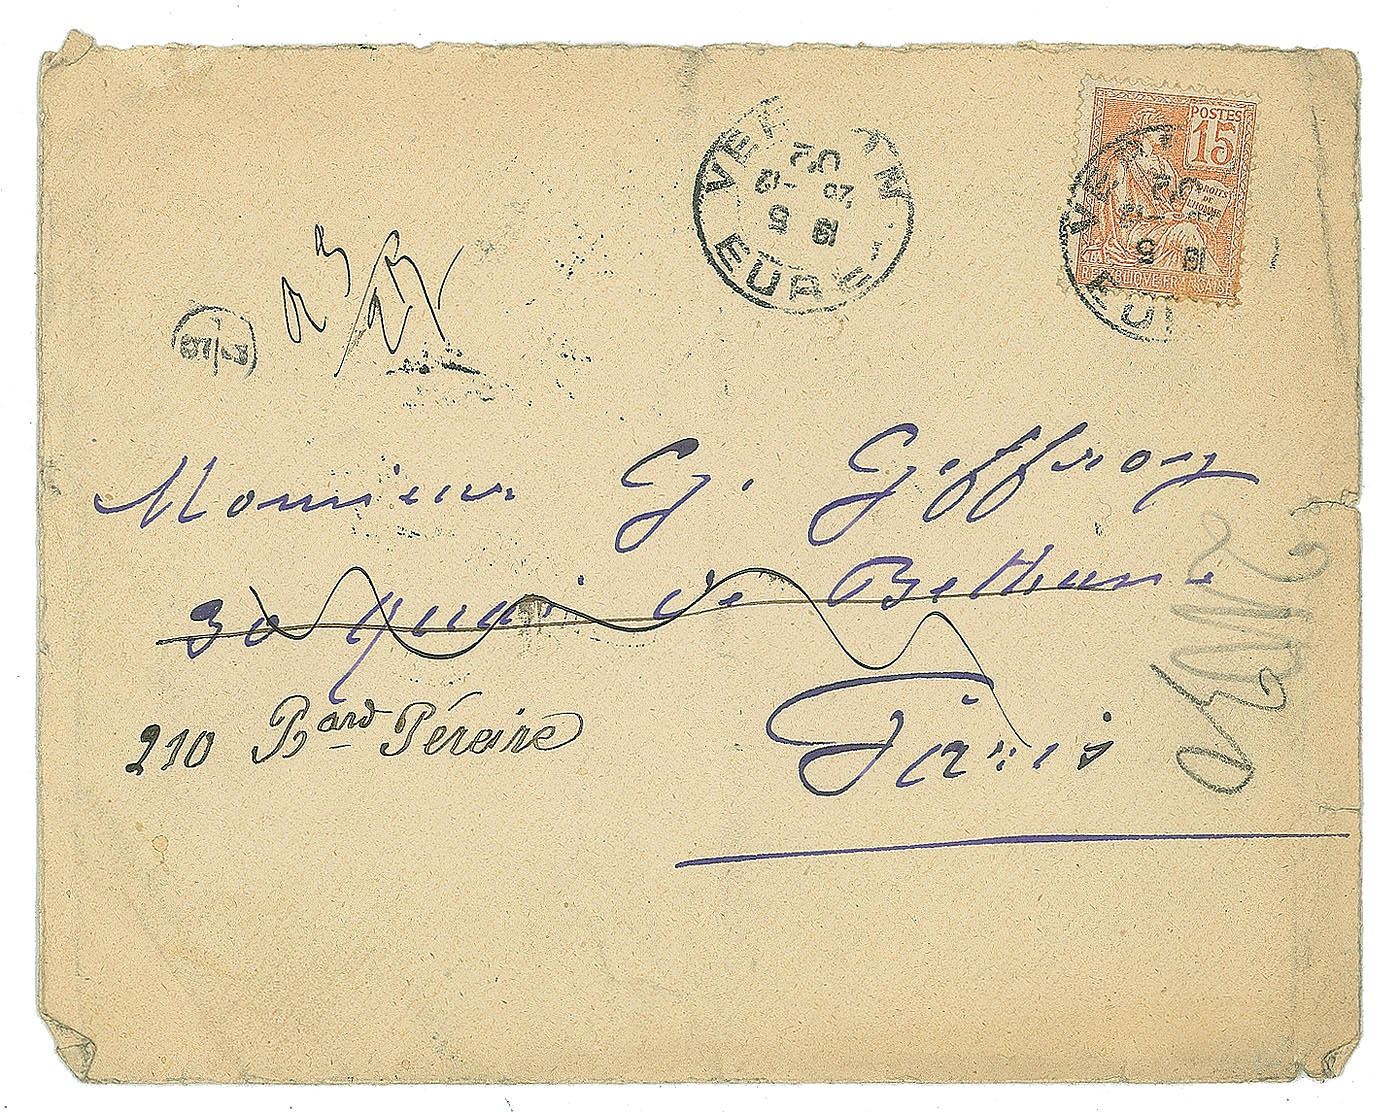 POSTES
15
DROITS
DE
L'HOMME
REPUBLIQUE FRANCAISE
VERNON
EURE
02
Monsieur G. Geffroy
30 quai de Bethune
210 Bard Péreire
Paris